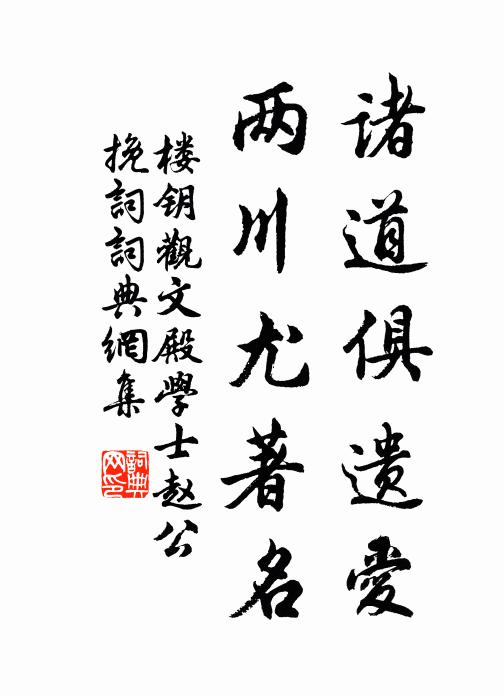 诸道俱遗爱
两川尤著名
楼钥觀文殿學士赵公
挽詞詞典網集
詞典网印